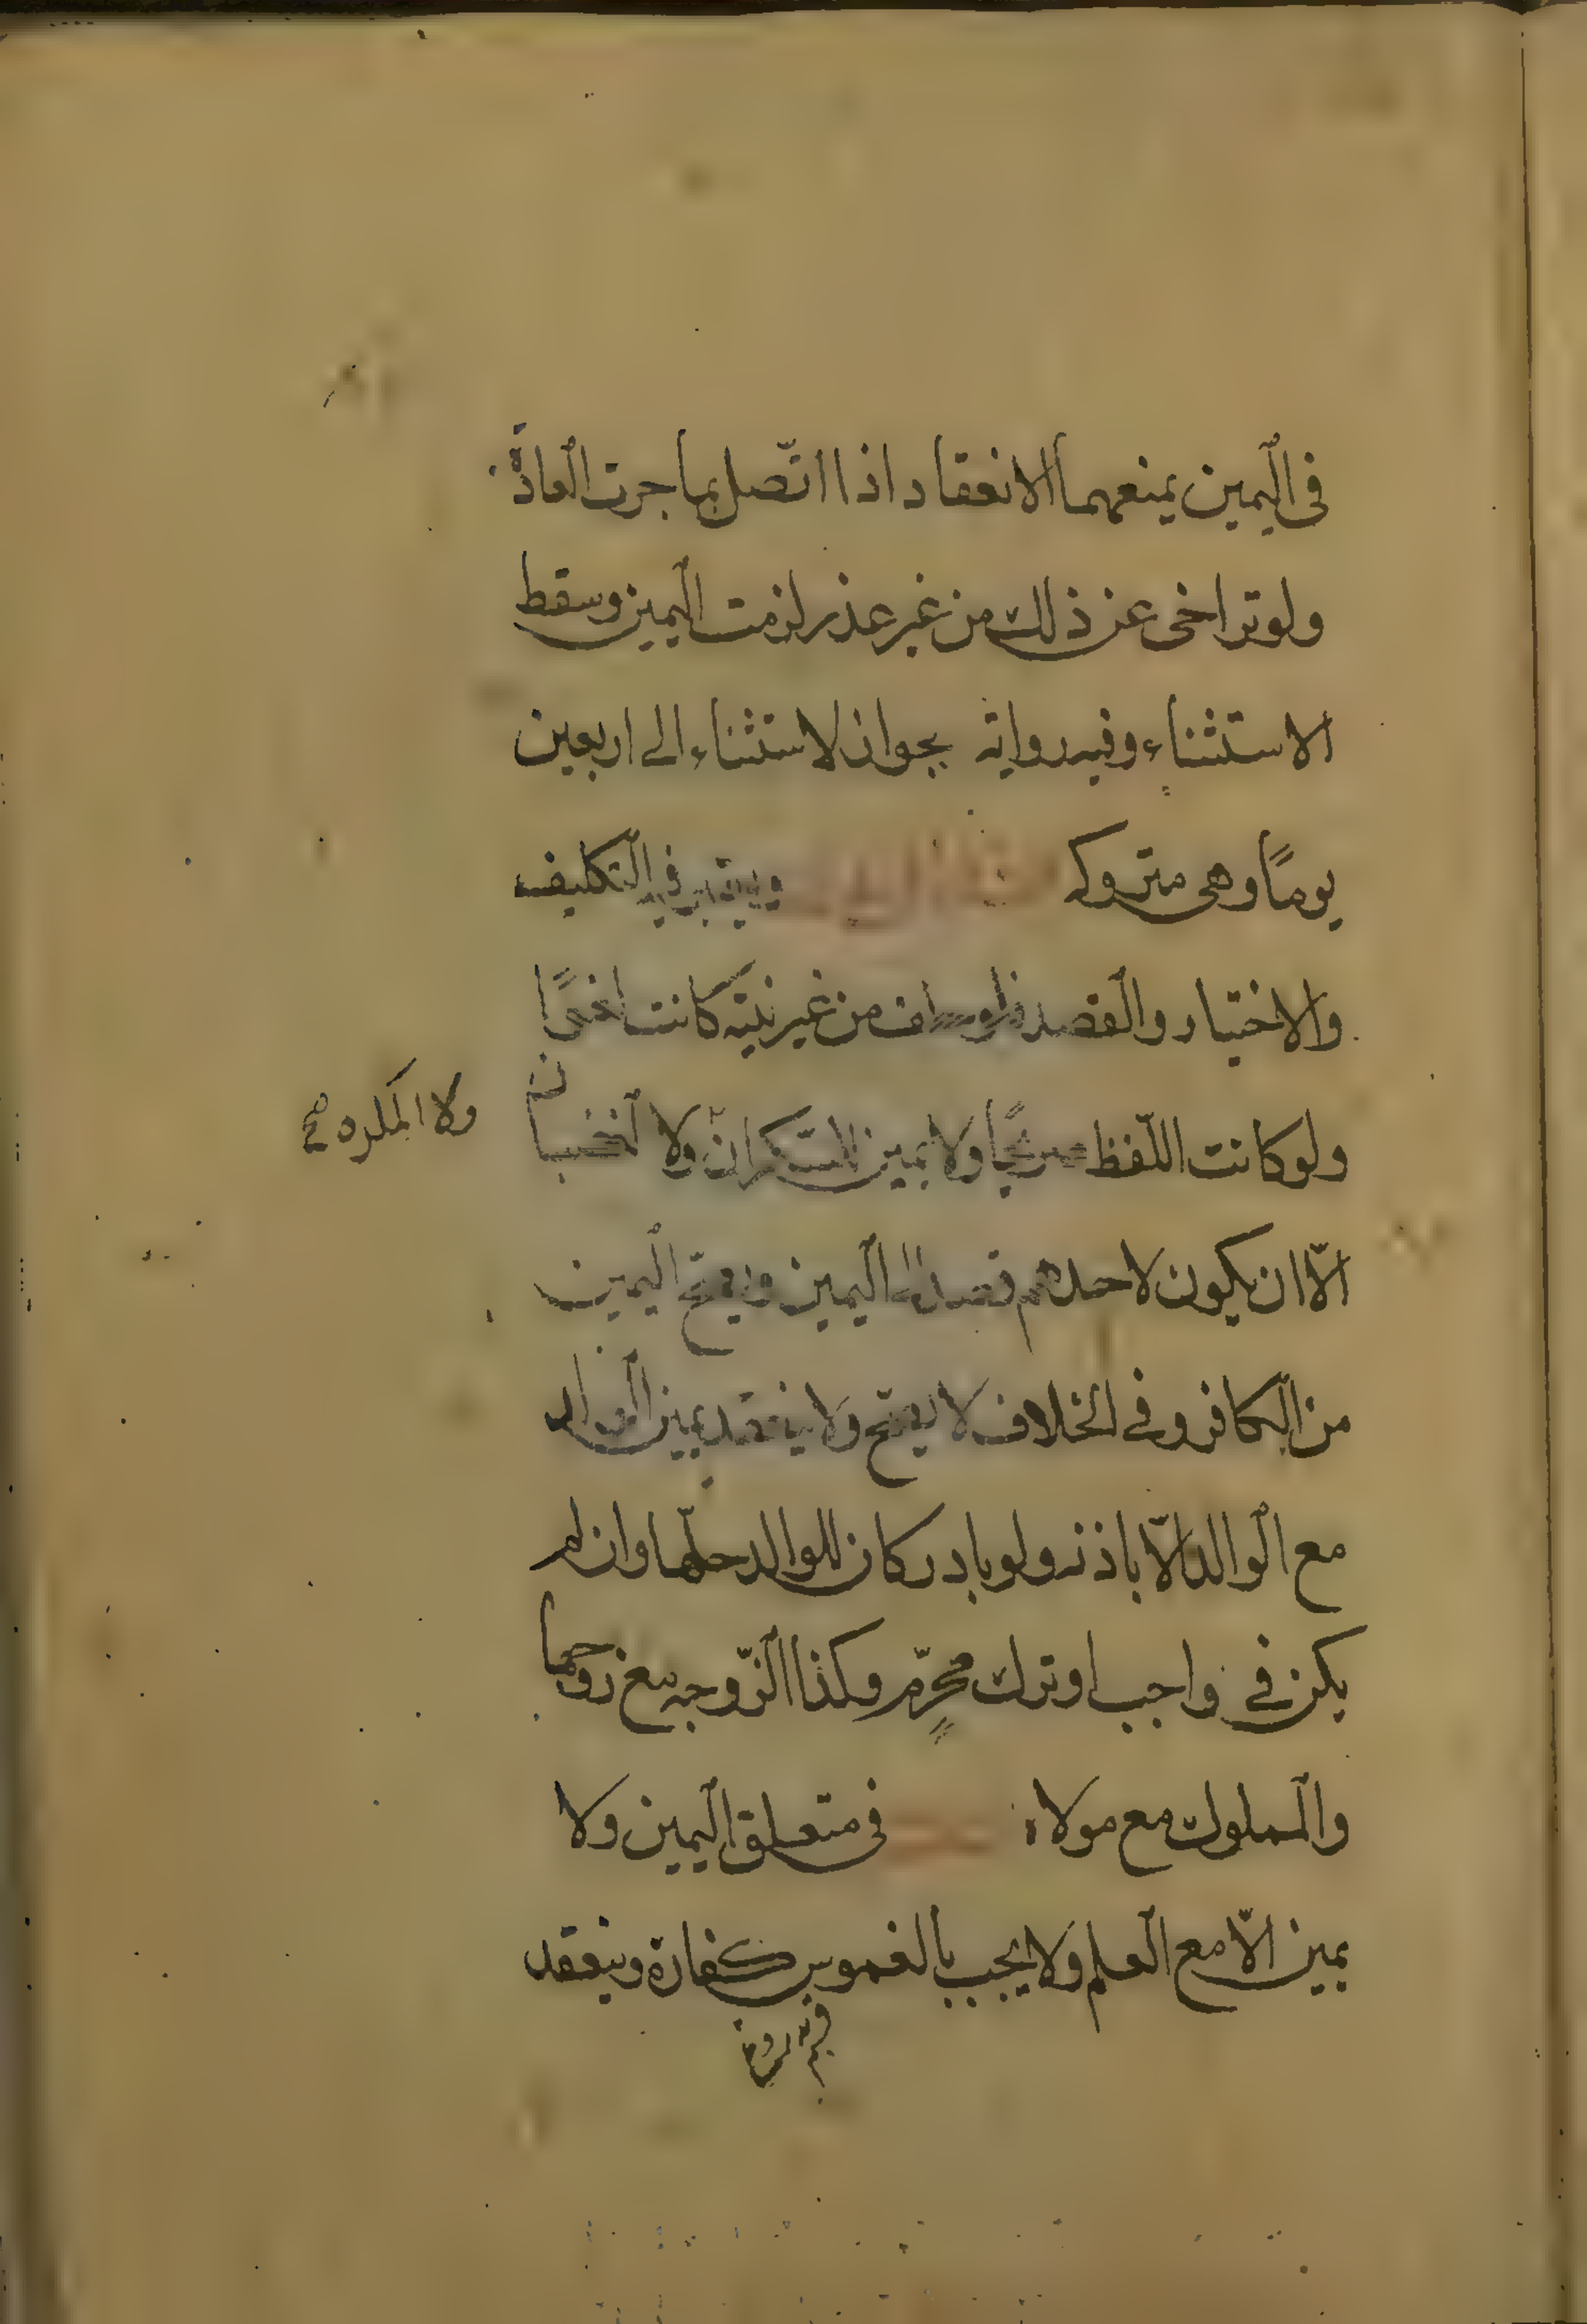 في اليمين يمنعهما الانعقاد اذا اتّصل بما جرت العادة
ولو تراخى عن ذلك من غير عذر لزمت اليمين وسقط
الاستثناء وفيه رواية بجواز الاستثناء الى اربعين
يومًا وهى متروكه ويعتبر فيه التكليف
والاختيار والقصد فلو حلف من غير نيّة كانت
ولو كانت اللّفظ صريحًا ولا يمين للسّكران ولا الغضبان
ولا المكره صح
الّا ان يكون لاحدهم قصد الى اليمين ويصحّ اليمين
من الكافر وفى الخلاف لا يصحّ ولا ينعقد يمين الولد
مع الوالد الّا باذنه ولو بادر كان للوالد حلّها وان لم
يكن في واجب او ترك محرّم وكذا الزّوجه مع زوجها
والمملوك مع مولاه في متعلق اليمين ولا
يمين الّا مع العلم ولا يجب بالغموس كفارة وينعقد